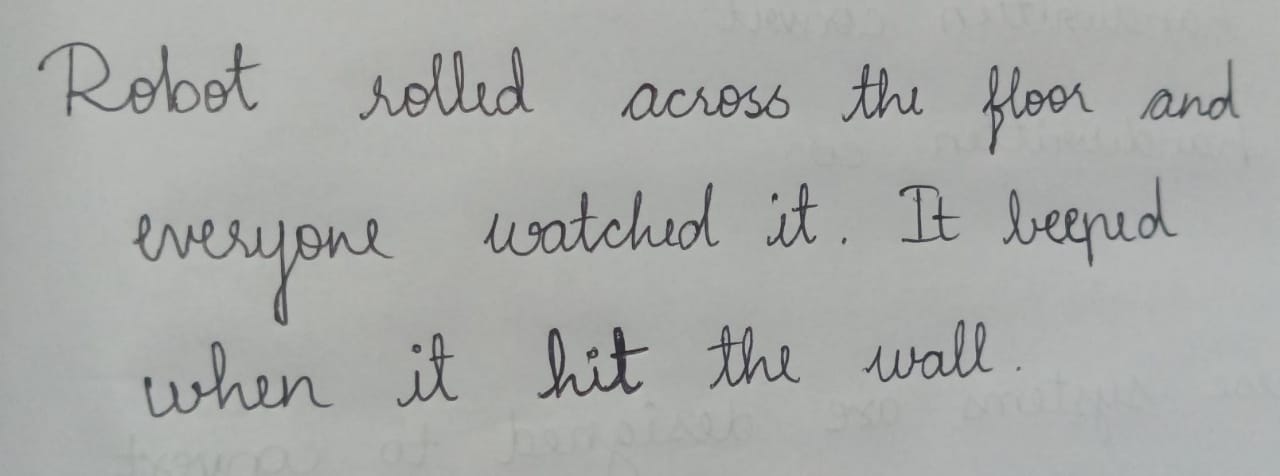 Robot rolled across the floor and
everyone watched it. It beeped
when it hit the wall.